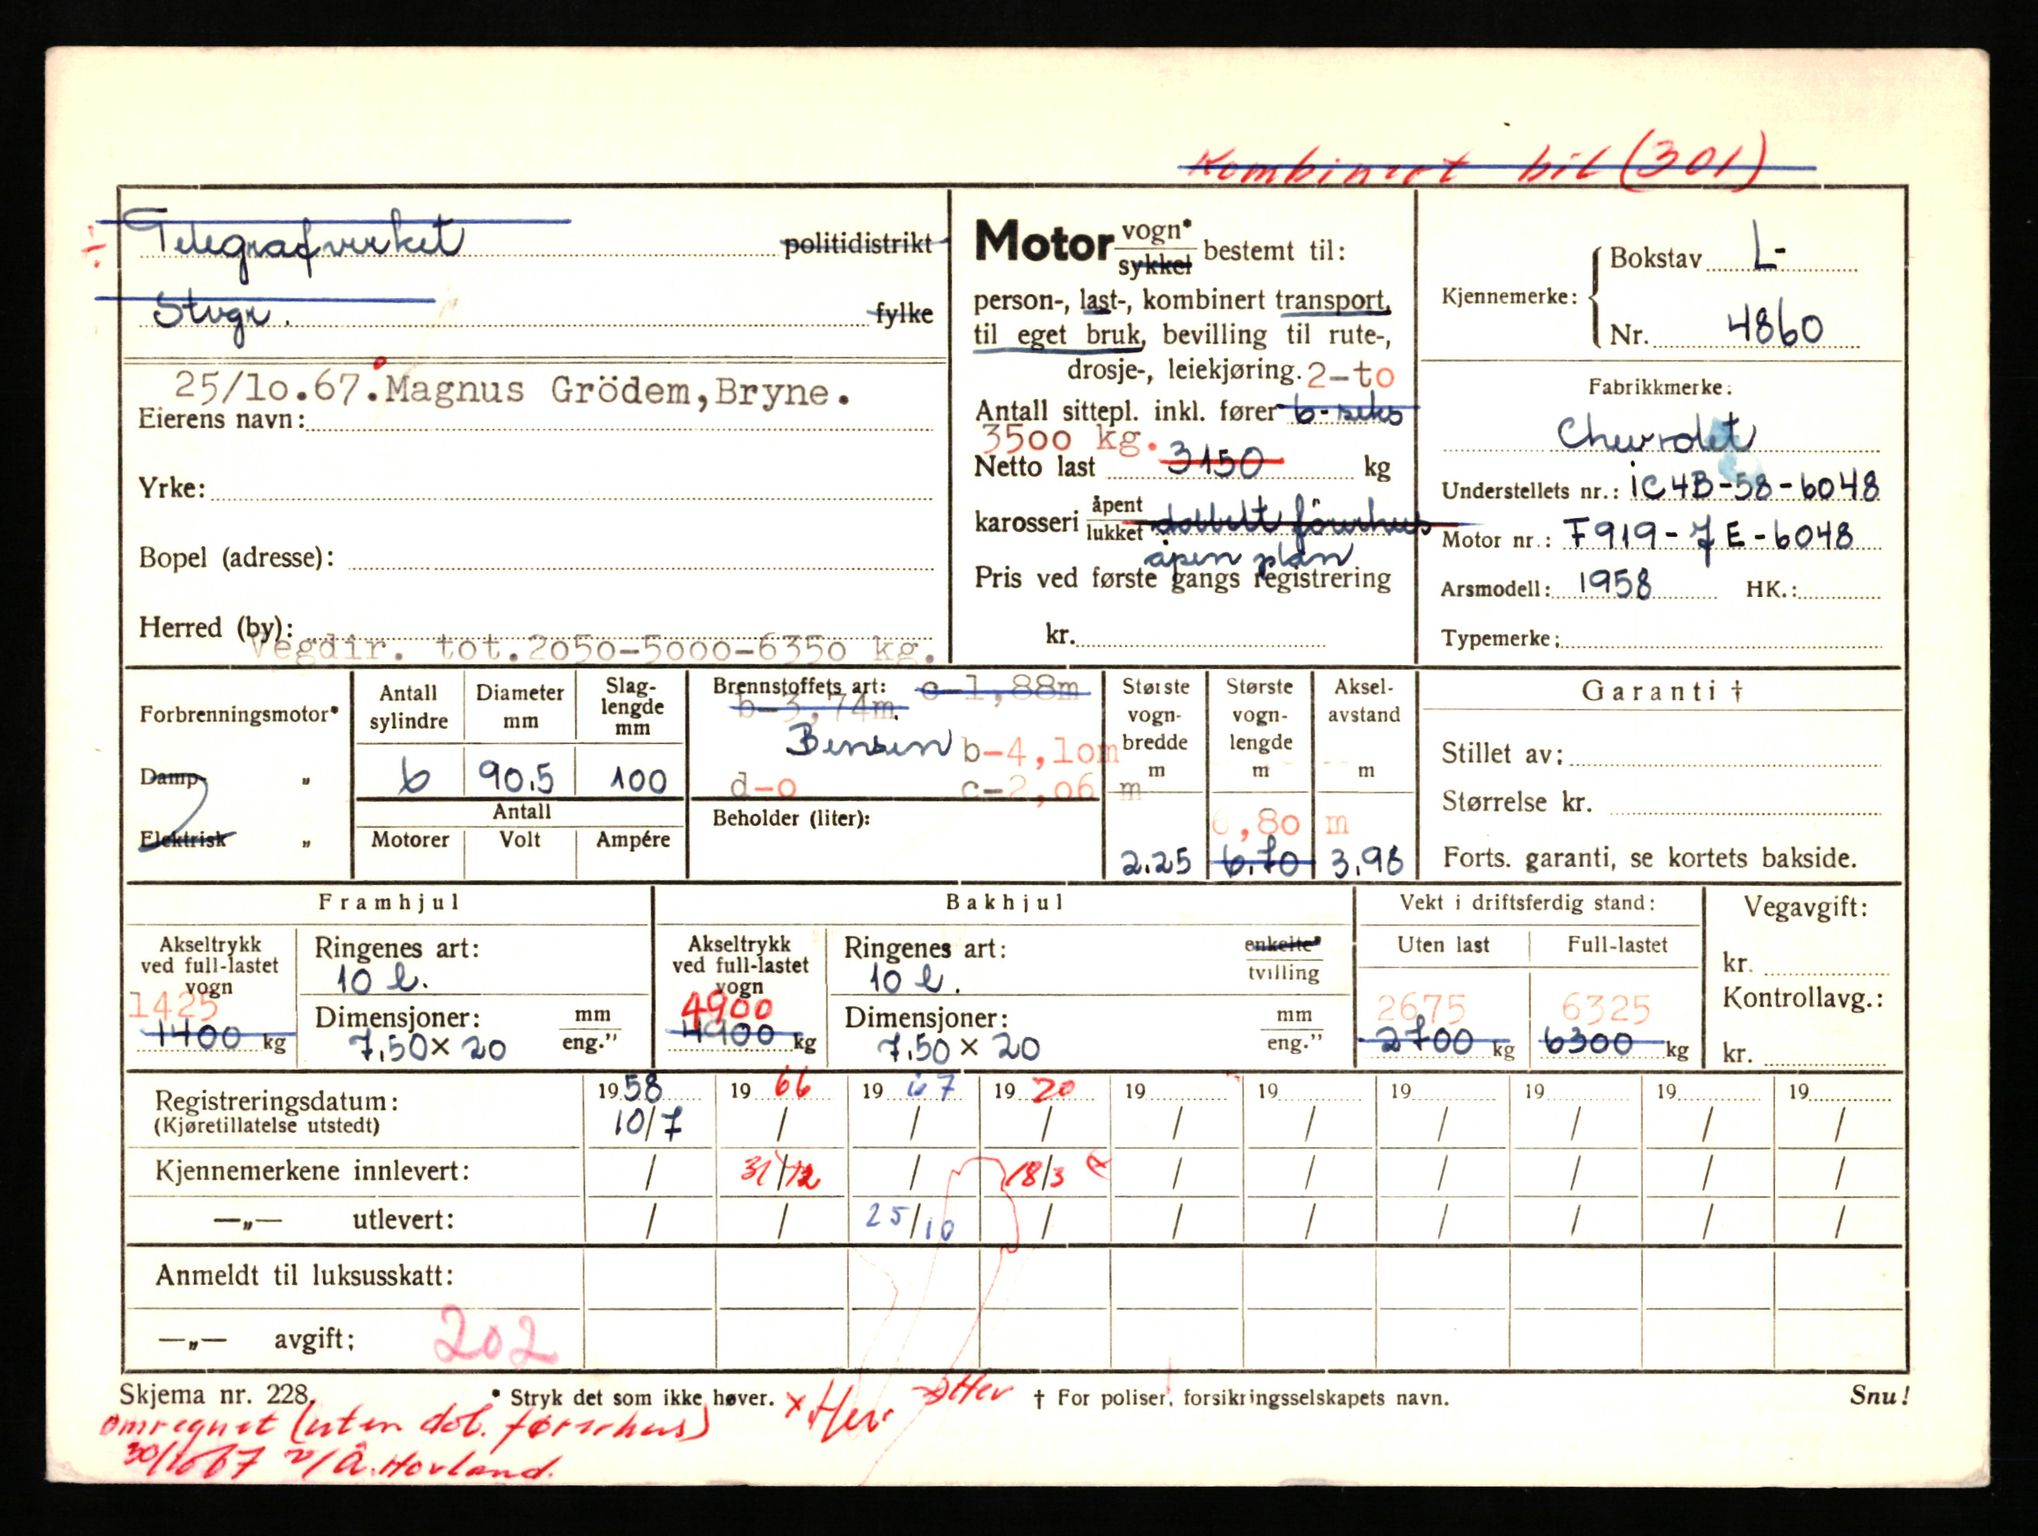 Kombinert bil (301)
Telegrafverket politidistrikt
Stvgr. fylke
25/10.67. Magnus Grödem, Bryne.
Eierens navn:
Yrke:
Bopel (adresse):
Herred (by):
Vegdir. tot. 2050-5000-6350 kg.
Motor vogn* sykkel bestemt til:
person-, last-, kombinert transport,
til eget bruk, bevilling til rute-,
drosje-, leiekjøring. 2-to
Antall sittepl. inkl. fører 6-seks
3500 kg.
Netto last 3150 kg
karosseri åpent lukket dobbelt førerhus
åpen plan
Pris ved første gangs registrering
kr.
Kjennemerke: Bokstav L-
Nr. 4860
Fabrikkmerke:
Chevrolet
Understellets nr.: ic4B-58-6048
Motor nr.: F919-7E-6048
Årsmodell: 1958 HK.:
Typemerke:
Forbrenningsmotor*
Damp- „
Elektrisk „
Antall sylindre Diameter mm Slaglengde mm
6 90.5 100
Antall
Motorer Volt Ampére
Brennstoffets art: c-1,88m
b-3,74m.
Bensin b-4,10m
d-o c-2,06 m
Beholder (liter):
Største vogn-bredde m Største vogn-lengde m Aksel-avstand m
6,80 m
2.25 6.70 3.98
Garanti †
Stillet av:
Størrelse kr.
Forts. garanti, se kortets bakside.
Framhjul
Akseltrykk ved full-lastet vogn
1425
1400 kg
Ringenes art:
10 l.
Dimensjoner: mm eng.”
7.50 × 20
Bakhjul
Akseltrykk ved full-lastet vogn
4900
4900 kg
Ringenes art: enkelte* tvilling
10 l.
Dimensjoner: mm eng.”
7.50 × 20
Vekt i driftsferdig stand:
Uten last Full-lastet
2675 6325
2700 kg 6300 kg
Vegavgift:
kr.
Kontrollavg.:
kr.
Registreringsdatum: 1958 1966 1967 1920 19 19 19 19 19 19
(Kjøretillatelse utstedt) 10/7 / / / / / / / / /
Kjennemerkene innlevert: / 31/12 / 18/3 / / / / / /
—„— utlevert: / / 25/10 / / / / / / /
Anmeldt til luksusskatt:
—„— avgift: 202
Skjema nr. 228. * Stryk det som ikke høver. × Her Her † For poliser, forsikringsselskapets navn. Snu!
omregnet (uten dob. førerhus)
30/10 67 v/ Å. Hovland.